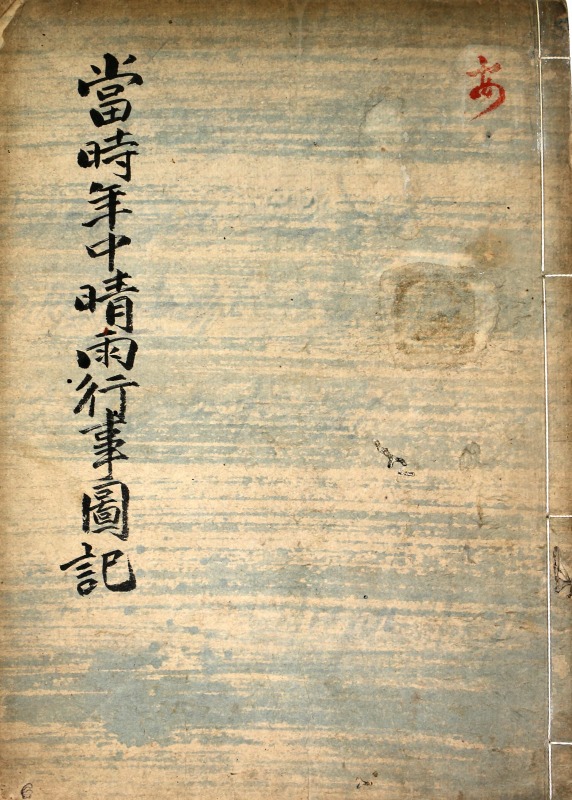 當時年中晴雨行事圖記